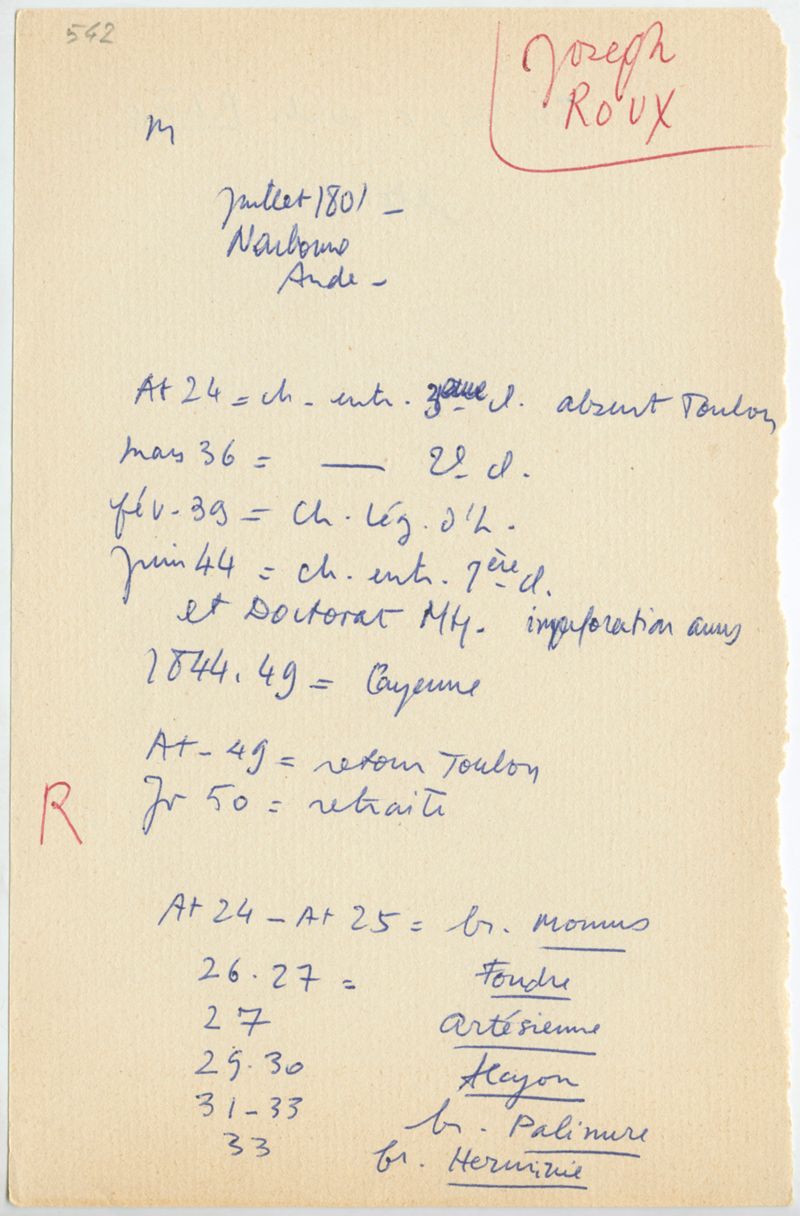 542
Joseph
ROUX
M
Juillet 1801 -
Narbonne
Aude -
At 24 = ch. entr. 3ème cl. absent Toulon
mars 36 = —— 2e cl.
fév. 39 = Ch. Lég. d'h.
Juin 44 = ch. entr. 1ère cl.
et Doctorat M imperforation anus
1844.49 = Cayenne
At - 49 = retour Toulon
Jr 50 = retraite
R
At 24 - At 25 = br. Momus
26.27 = Foudre
27 Artésienne
29.30 Alcyon
31-33 br. Palinure
33 br. Herminie